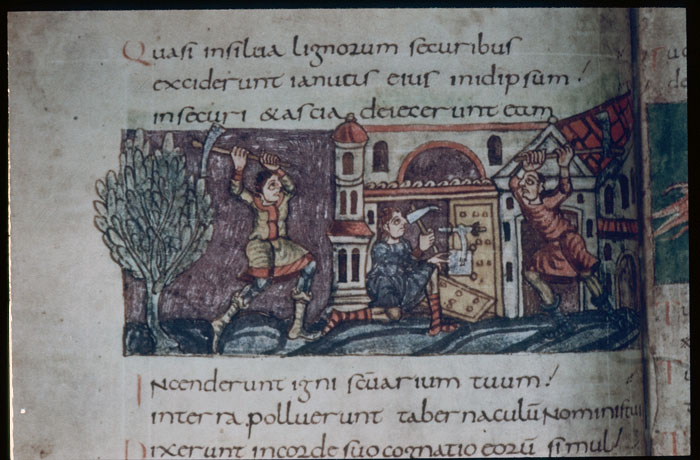 Quasi insilua lignorum securibus
exciderunt ianuas eius inidipsum!
insecuri &ascia deiecerunt eam
Incenderunt igni scuarium tuum!
interra polluerunt tabernaculū Noministui
Dixerunt incorde suo cognatio eorū simul!